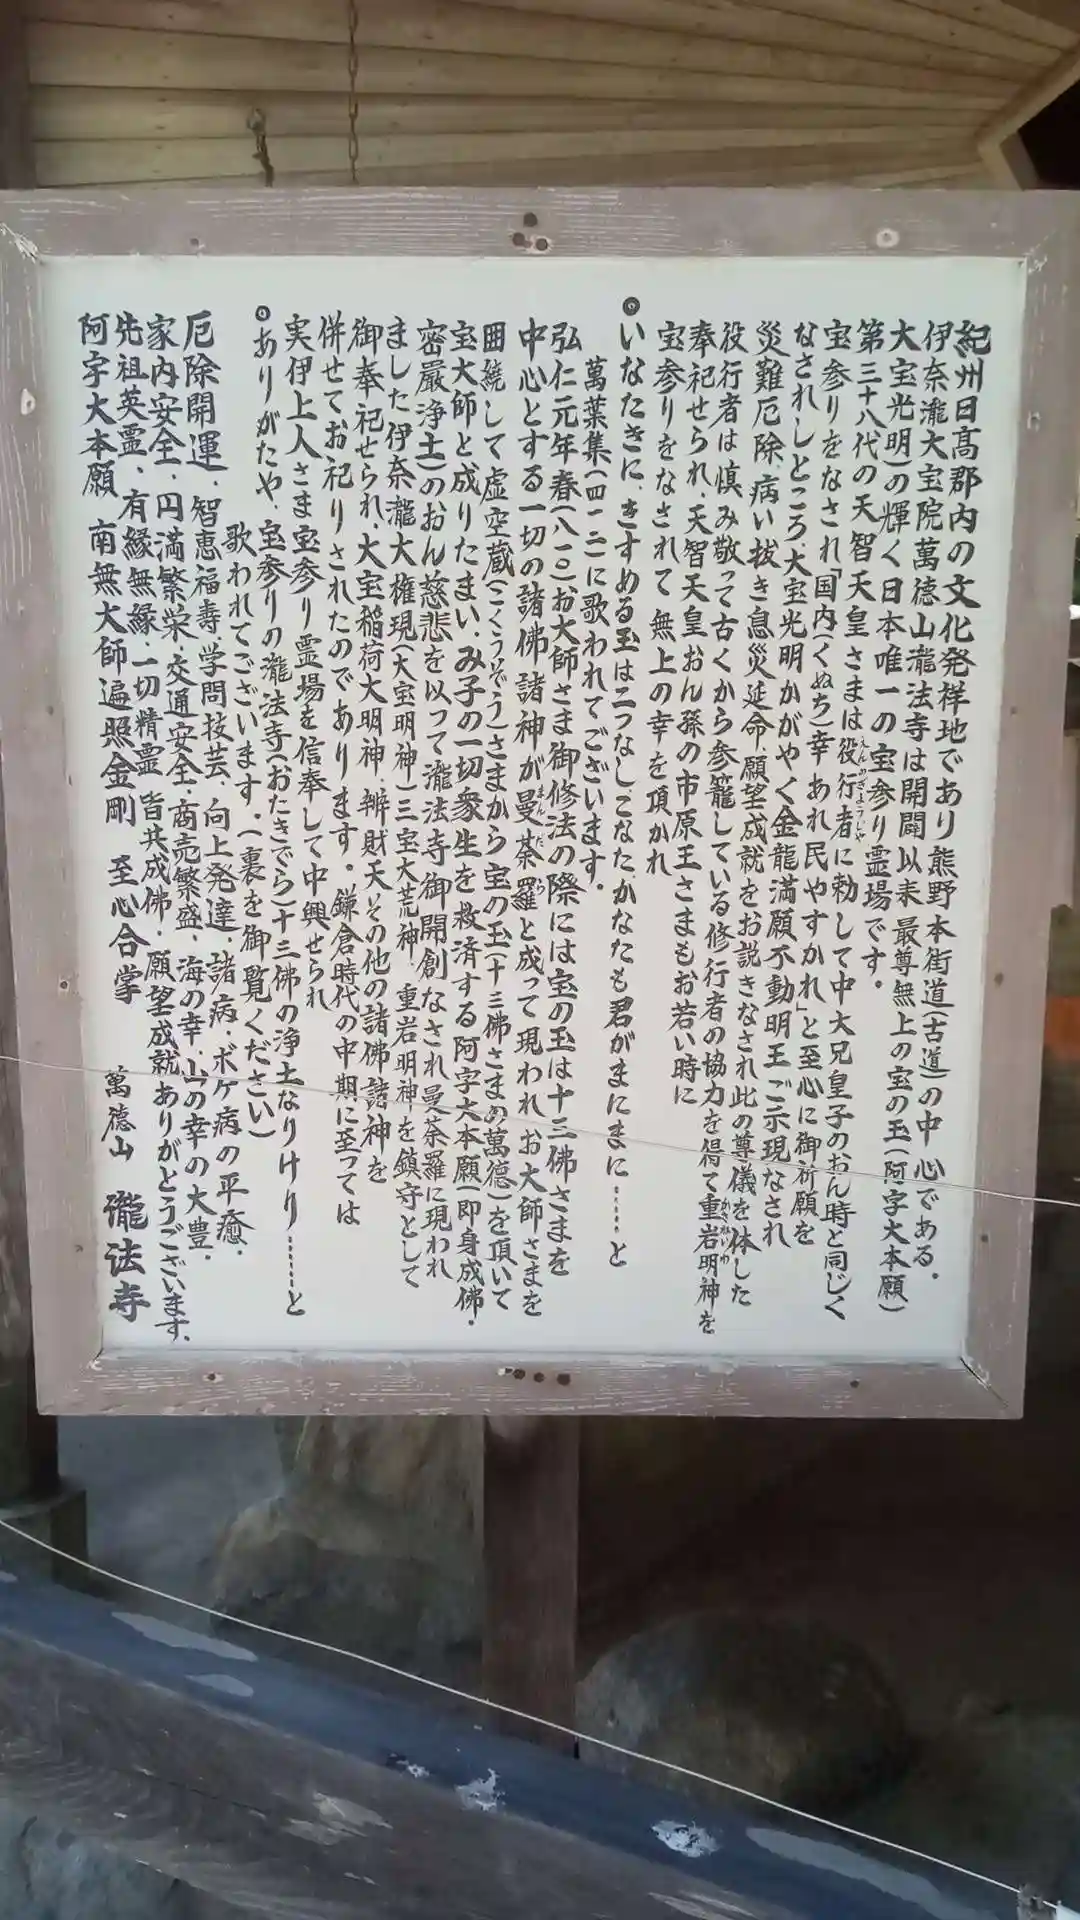 紀州日高郡内の文化発祥地であり熊野本街道(古道)の中心である。
伊奈瀧大宝院萬徳山瀧法寺は開闢以来最尊無上の宝の玉(阿字大本願)
大宝光明)の輝く日本唯一の宝参り霊場です。
第三十八代の天智天皇さまは役行者に勅して中大兄皇子のおん時と同じく
宝参りをなされ「国内(くぬち)幸あれ民やすかれ」と至心に御祈願を
なされしところ大宝光明かがやく金龍満願不動明王ご示現なされ
災難厄除、病い抜き息災延命、願望成就をお説きなされ此の尊儀を体した
役行者は慎み敬って古くから参籠している修行者の協力を得て重岩明神を
奉祀せられ、天智天皇おん孫の市原王さまもお若い時に
宝参りをなされて無上の幸を頂かれ
◎いなたきに、きすめる玉は二つなし、こなた、かなたも君がまにまに……と
萬葉集(四一二)に歌われてございます。
弘仁元年春(八一〇)お大師さま御修法の際には宝の玉は十三佛さまを
中心とする一切の諸佛諸神が曼荼羅と成って現われ、お大師さまを
囲繞して虚空蔵(こくうぞう)さまから宝の玉(十三佛さまの萬徳)を頂いて
宝大師と成りたまい、み子の一切衆生を救済する阿字大本願(即身成佛・
密厳浄土)のおん慈悲を以って瀧法寺御開創なされ曼荼羅に現われ
ました伊奈瀧大権現(大宝明神)三宝大荒神、重岩明神を鎮守として
御奉祀せられ、大宝稲荷大明神、辨財天その他の諸佛諸神を
併せてお祀りされたのであります。鎌倉時代の中期に至っては
実伊上人さま宝参り霊場を信奉して中興せられ
◎ありがたや、宝参りの瀧法寺(おたきでら)十三佛の浄土なりけり……と
歌われてございます。(裏を御覧ください)
厄除開運、智恵福寿、学問技芸、向上発達、諸病、ボケ病の平癒、
家内安全、円満繁栄、交通安全、商売繁盛、海の幸、山の幸の大豊、
先祖英霊、有縁無縁、一切精霊 皆共成佛、願望成就ありがとうございます、
阿字大本願 南無大師遍照金剛 至心合掌 萬徳山 瀧法寺